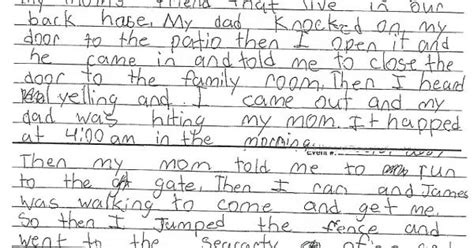 my mom's friend that live in our
back hose. My dad knocked on my
door to the partio then I open it and
he came in and told me to close the
door to the family room. Then I heard
yelling and I came out and my
dad was hiting my mom. It happed
at 4:00 am in the morning.
Then my mom told me to run
to the gate. Then I ran and James
was walking to come and get me.
So then I Jumped the fence and
went to the of a